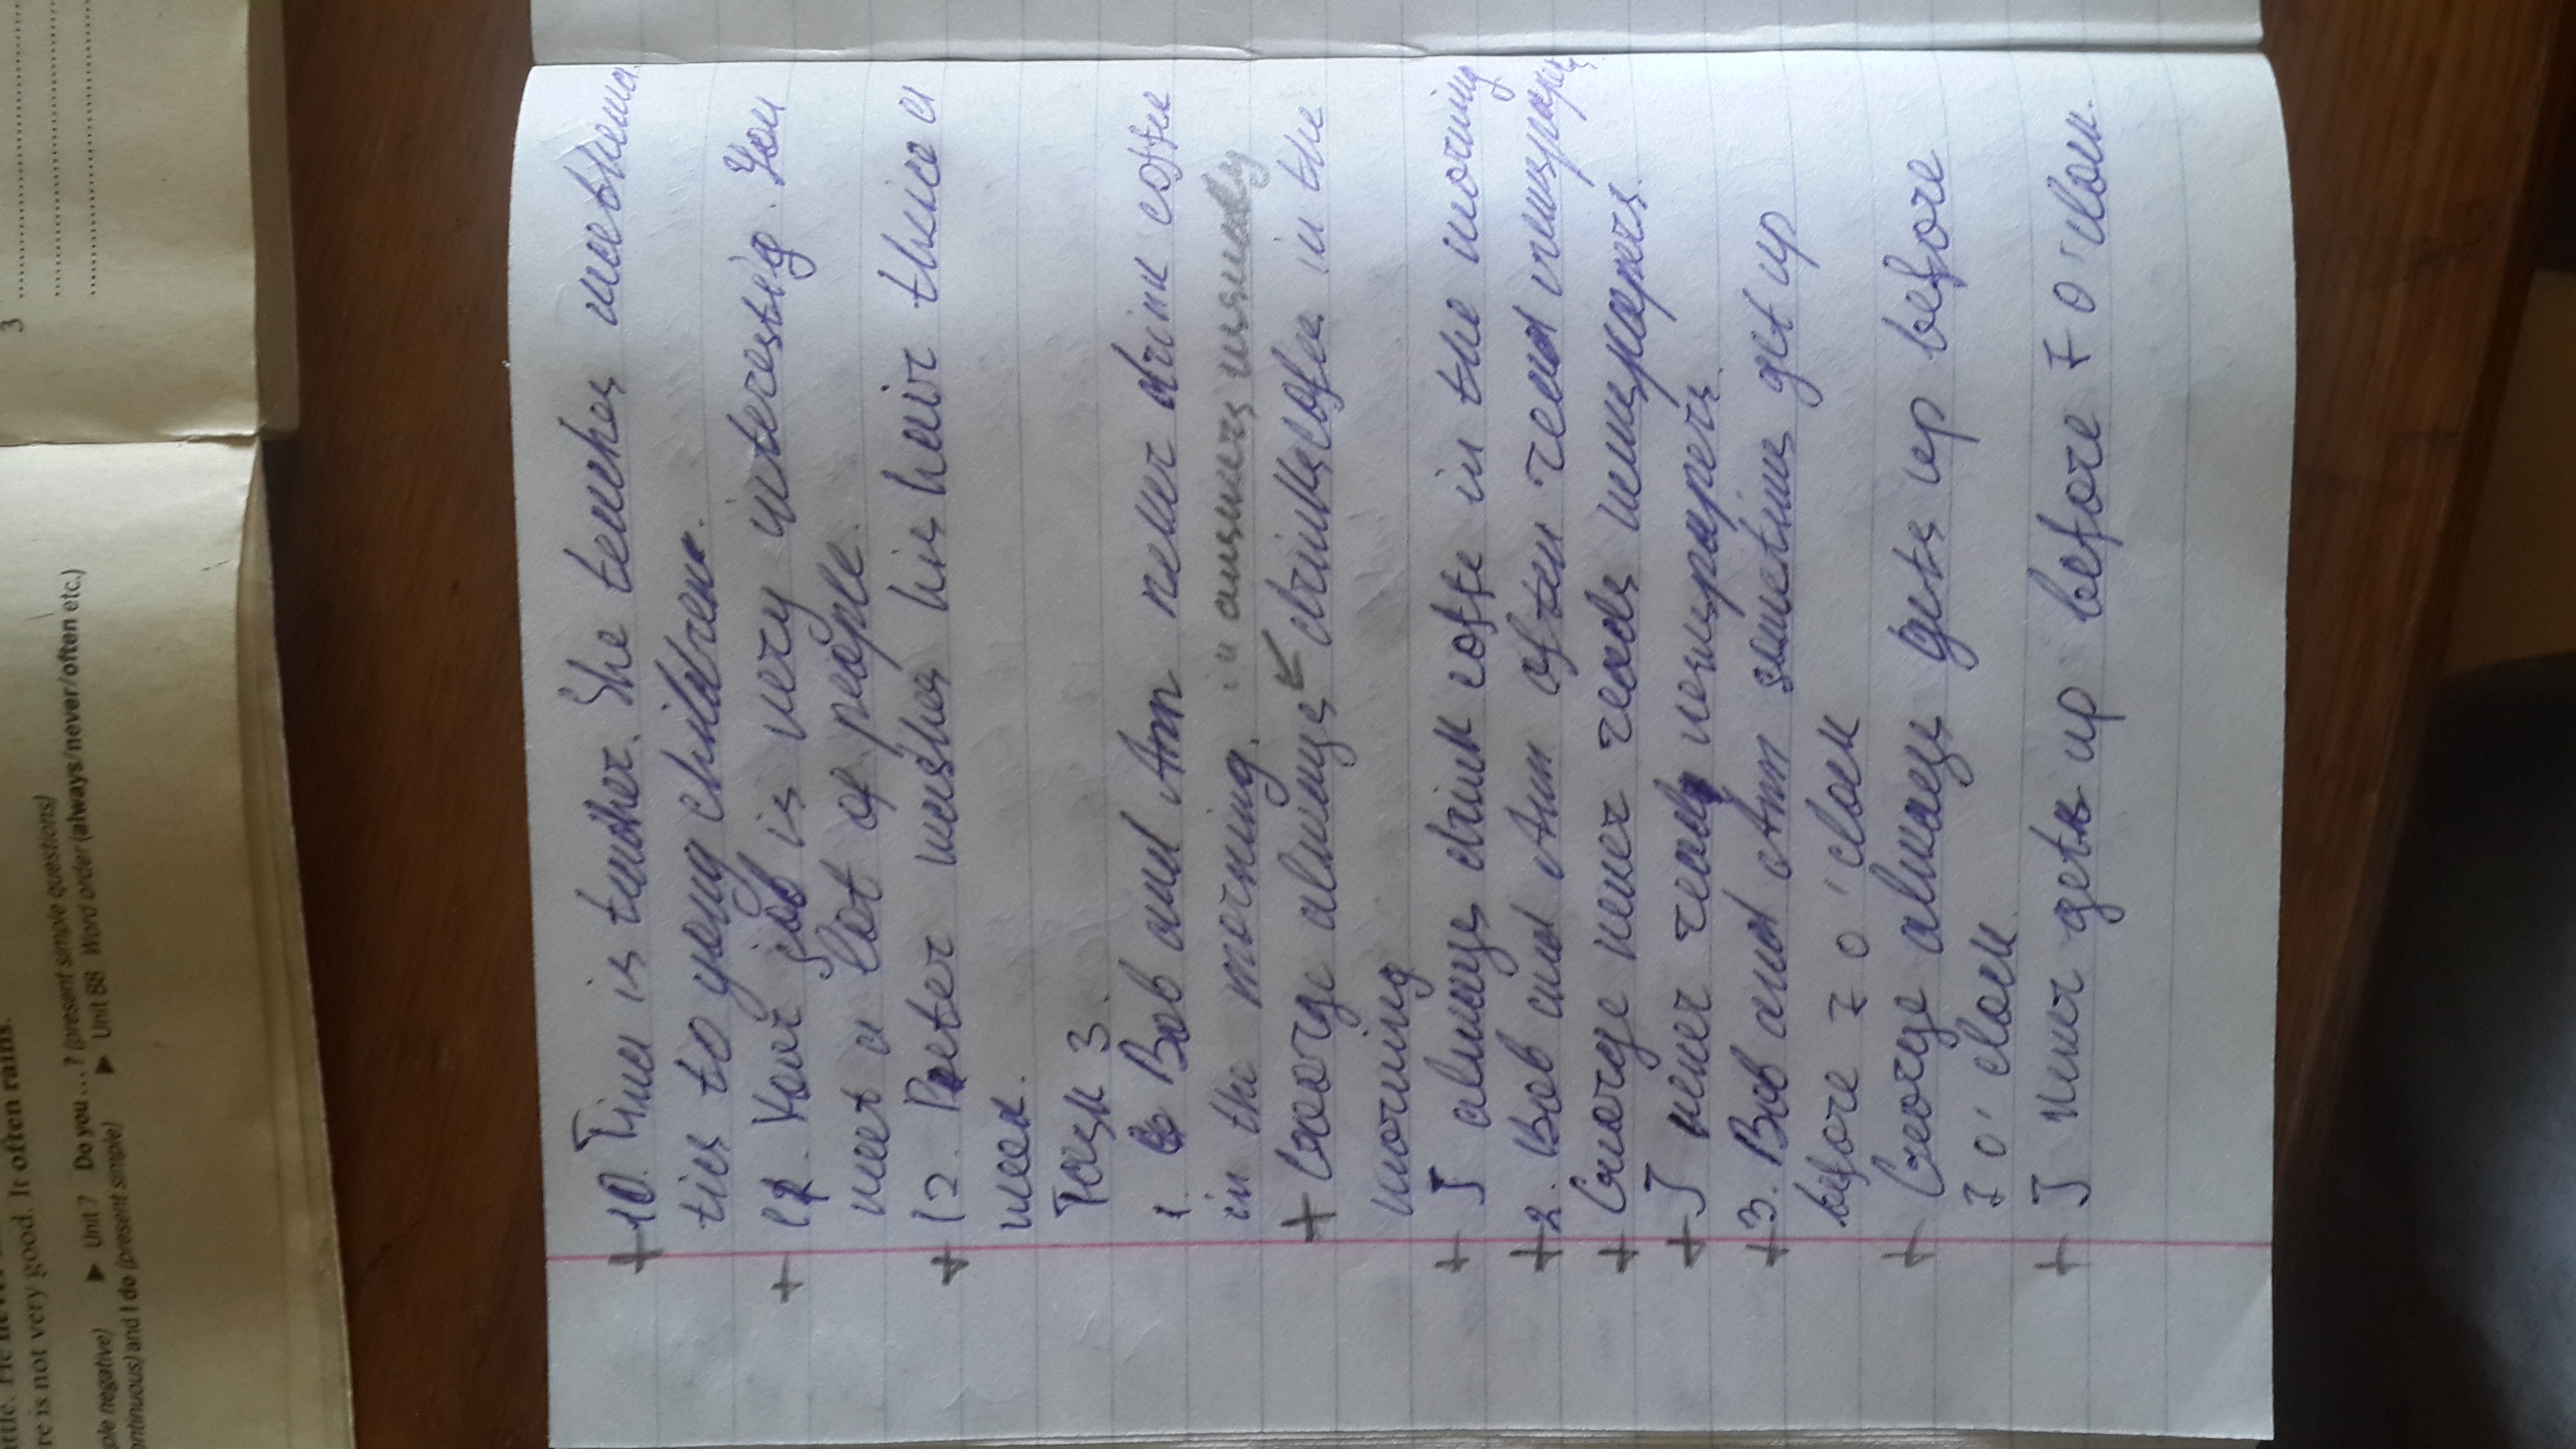 ttle. He never
re is not very good. It often rains.
ple negative) ▶ Unit 7 Do you ... ? (present simple questions)
ontinuous) and I do (present simple) ▶ Unit 88 Word order (always/never/often etc.)
3
+ 10. Tina is teacher. She teaches mathema-
tics to yong children.
+ 11. Your job is very interestig. You
meet a lot of people.
+ 12. Peter washes his hair twice a
week.
Task 3.
1. Bob and Ann never drink coffee
in the morning. in answers usually
+ George always ↙ drinks cofee in the
morning
+ I always drink coffe in the morning
+ 2. Bob and Ann often read newspapers.
+ George never reads newspapers.
+ I never read newspapers.
+ 3. Bob and Ann sometimes get up
before 7 o'clock
+ George always gets up before
7 o'clock.
+ I never get up before 7 o'clock.